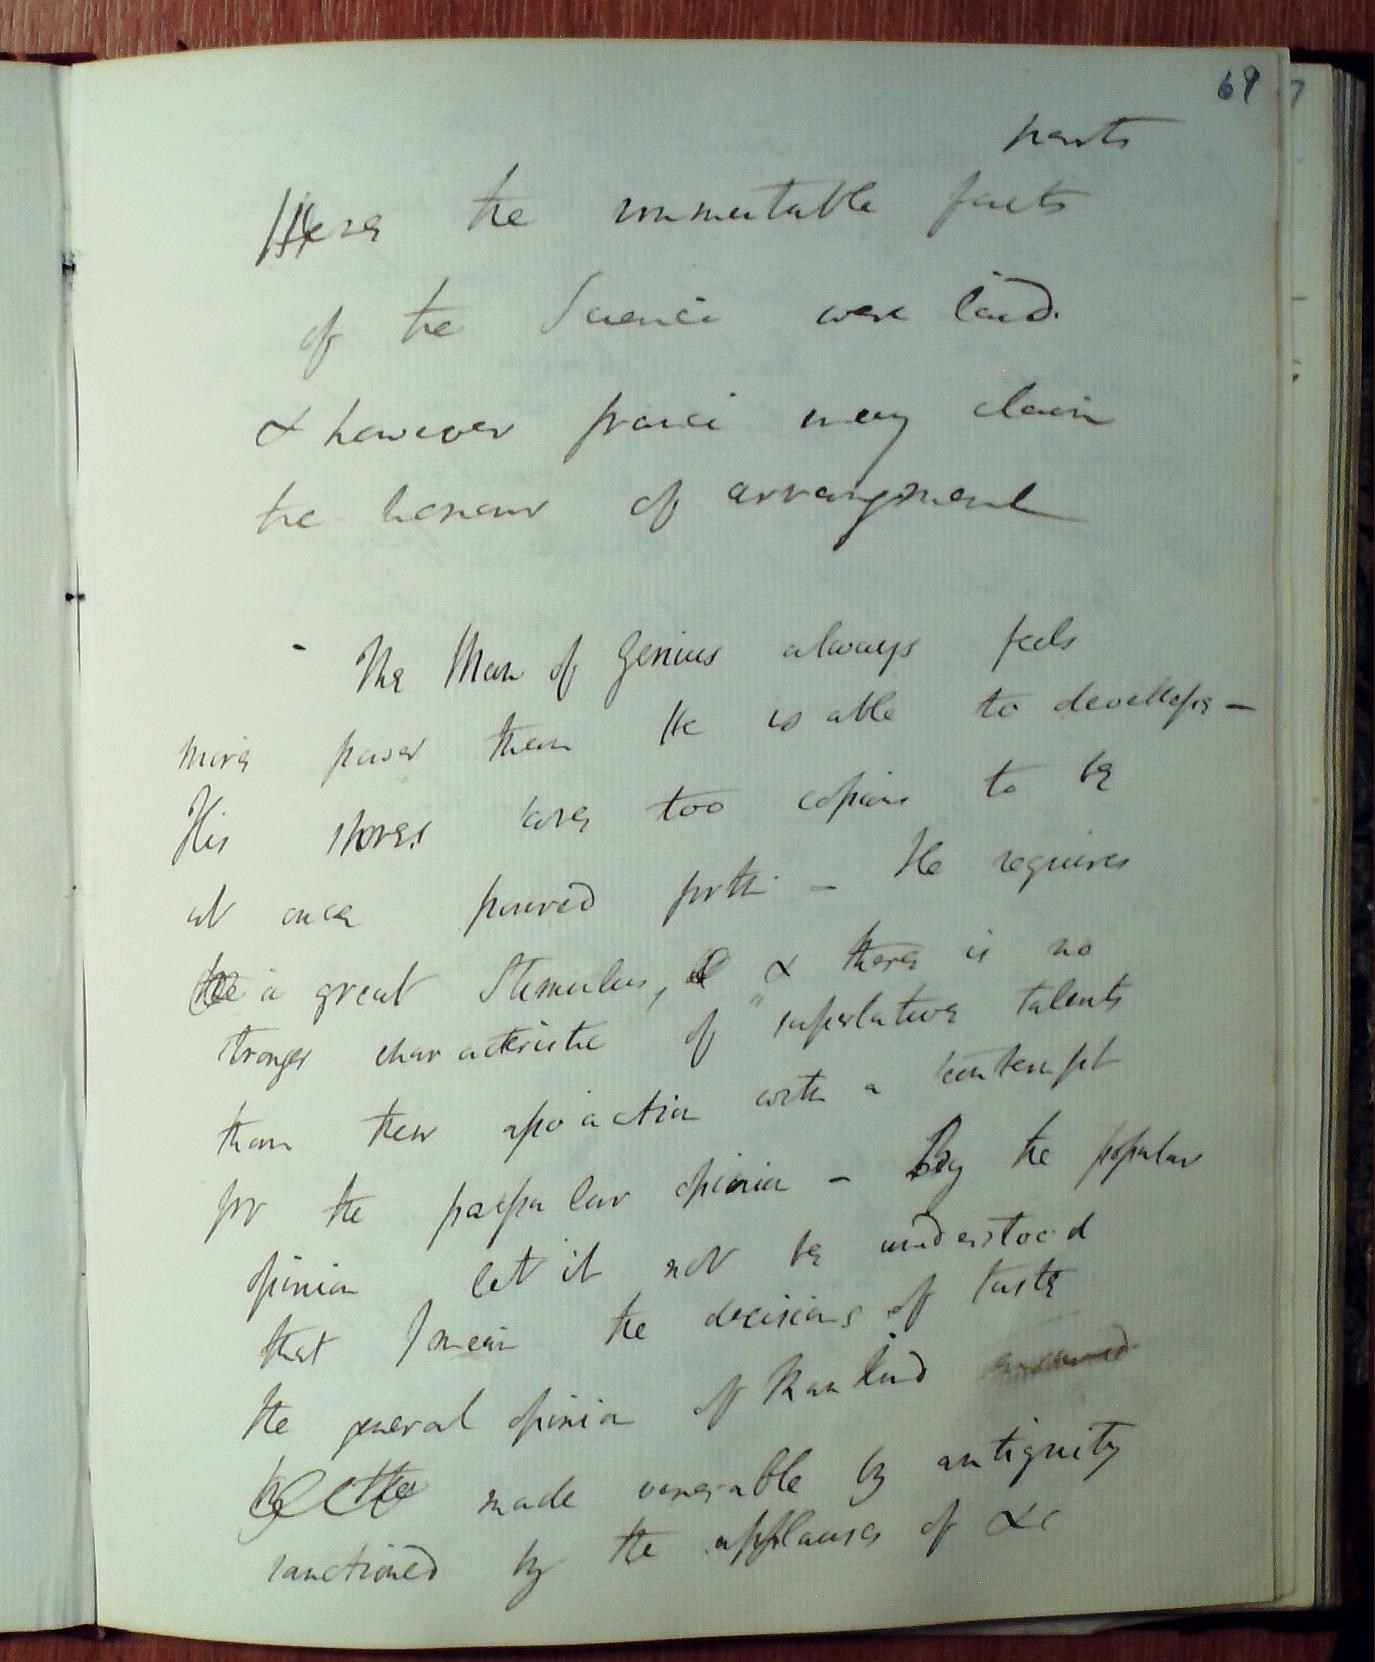 69
parts
Here the immutable facts
of the Science were laid.
& however France may claim
the honour of arrangment
- The Man of Genius always feels
more power than He is able to develope -
His stores are too copious to be
at once poured forth - He requires
a great Stimulus, & there is no
stronger characteristic of superlative talents
than their association with a contempt
for the popular opinion - By the popular
opinion let it not be understood
that I mean the decisions of taste
the general opinion of Mankind
made venerable by antiquity
sanctioned by the applauses of &c